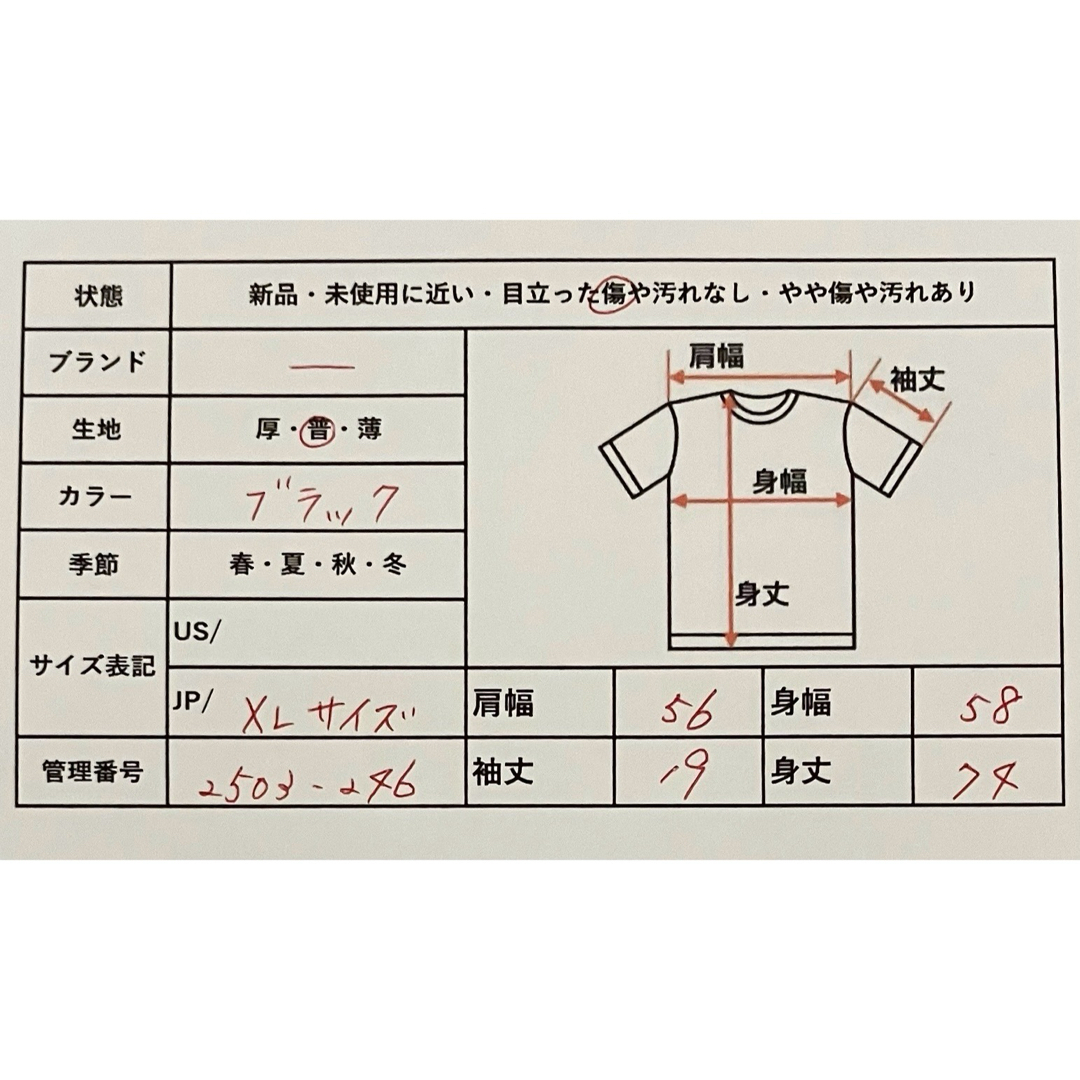 状態 新品・未使用に近い・目立った傷や汚れなし・やや傷や汚れあり
ブランド ―
生地 厚・普・薄
カラー ブラック
季節 春・夏・秋・冬
サイズ表記
US/
JP/ XLサイズ
管理番号 2503-246
肩幅
袖丈
身幅
身丈
肩幅 56 身幅 58
袖丈 19 身丈 74